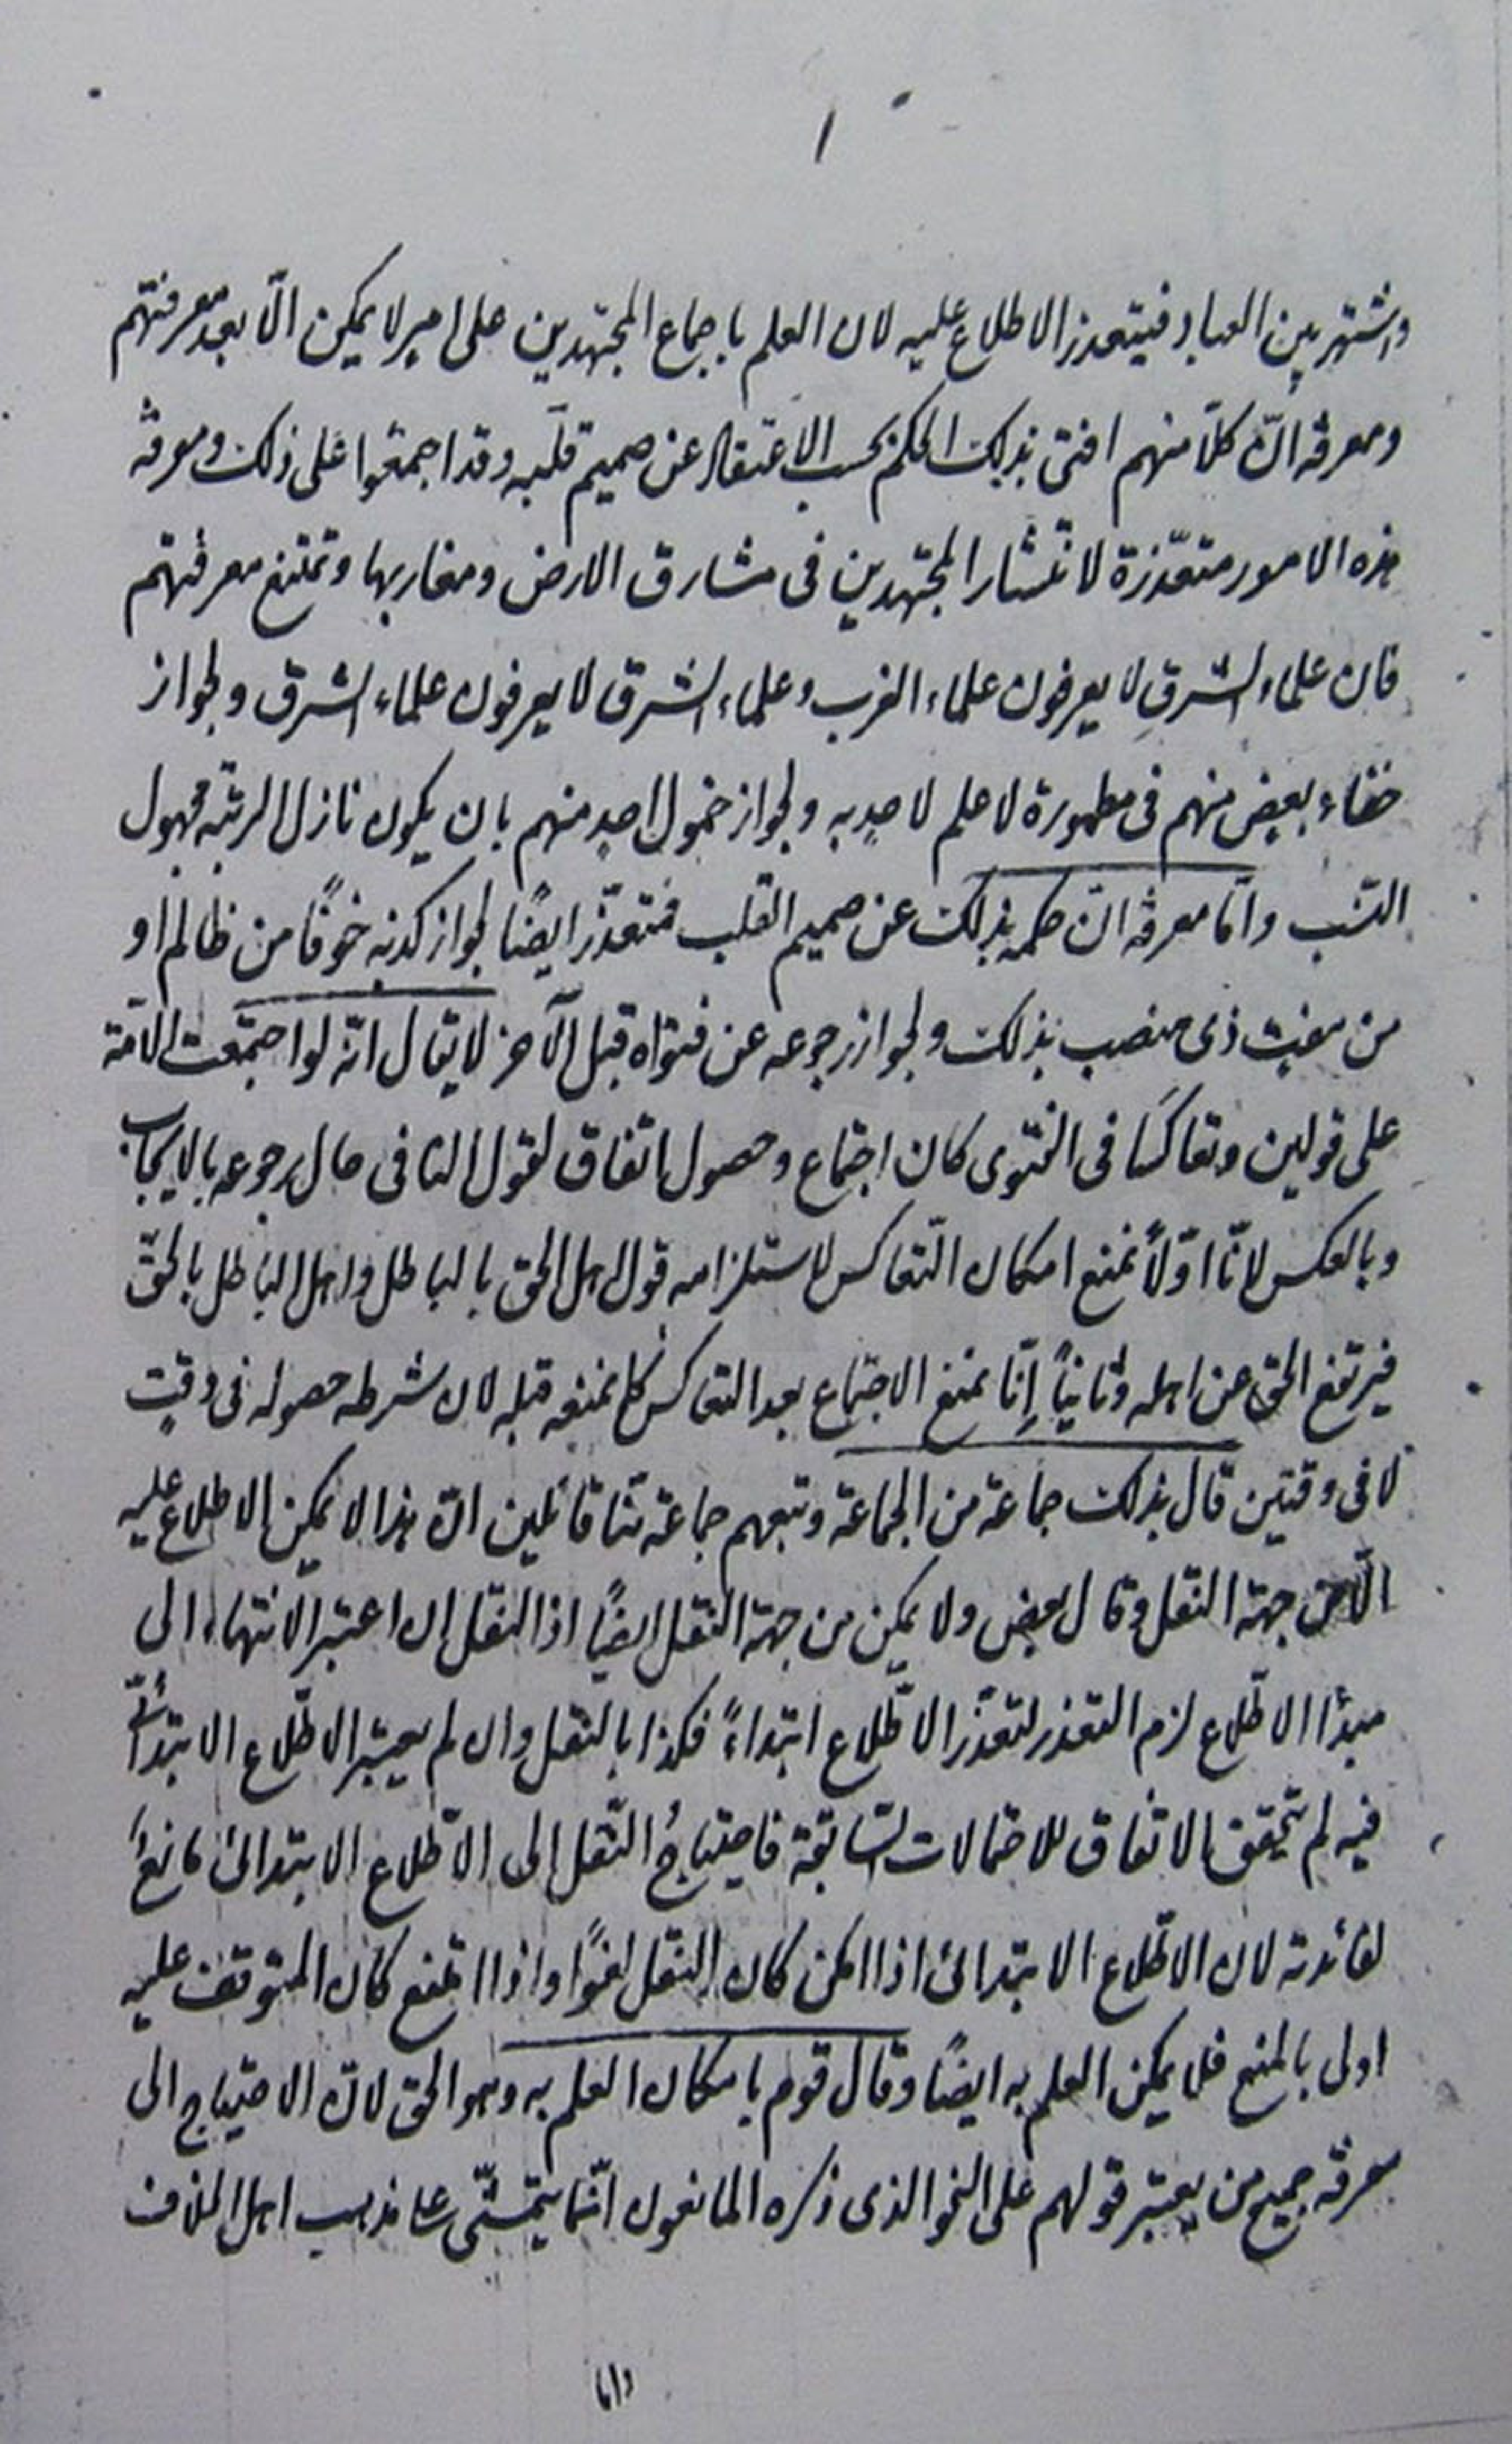 ١
واشتهر بين العباد فيتعذر الاطلاع عليه لان العلم باجماع المجتهدين على امر لا يمكن الّا بعد معرفتهم
ومعرفة انّ كلّا منهم افتى بذلك الحكم بحسب الاعتقاد عن صميم قلبه وقد اجمعوا على ذلك ومعرفة
هذه الامور متعذّرة لانتشار المجتهدين فى مشارق الارض ومغاربها وتمتنع معرفتهم
فان علماء الشرق لا يعرفون علماء الغرب وعلماء الشرق لا يعرفون علماء الشرق ولجواز
خفاء بعض منهم فى مطمورة لا علم لاحد به ولجواز خمول احد منهم بان يكون نازل الرتبة مجهول
النّسب وامّا معرفة انّ حكمه بذلك عن صميم القلب فمتعذّر ايضًا لجواز كذبه خوفًا من ظالم او
من مفت ذى منصب بذلك ولجواز رجوعه عن فتواه قبل الآخر لا يقال انّه لو اجتمعت الامّة
على قولين وتعاكسًا فى الفتوى كان اجتماع وحصول اتفاق لقول النافى حال رجوعه بالايجاب
وبالعكس لانّا اوّلاً نمنع امكان التّعاكس لاستلزامه قول اهل الحق بالباطل واهل الباطل بالحقّ
فيرتفع الحق عن اهله وثانياً إنّا نمنع الاجتماع بعد التعاكس كما نمنعه قبله لان شرطه حصوله فى وقت
لا فى وقتين قال بذلك جماعة من الجماعة وتبعهم جماعة منّا قائلين انّ هذا لا يمكن الاطلاع عليه
الّا من جهة النقل وقال بعض ولا يمكن من جهة النقل ايضًا اذ النقل ان اعتبر الانتهاء الى
مبدأ الاطّلاع لزم التعذر لتعذّر الاطّلاع ابتداءً فكذا بالنقل وان لم يعتبر الاطّلاع الابتدائىّ
فيه لم يتحقق الاتفاق للاحتمالات السّابقة فاحتياجُ النّقل الى الاطّلاع الابتدائى مانعٌ
لفائدته لان الاطّلاع الابتدائى اذا امكن كان النقل لغوًا واذا امتنع كان المتوقف عليه
اولى بالمنع فلا يمكن العلم به ايضًا وقال قوم بامكان العلم به وهو الحق لانّ الاحتياج الى
معرفة جميع من يعتبر قولهم على النحو الذى ذكره المانعون انّما يتمشّى على مذهب اهل الخلاف
واما